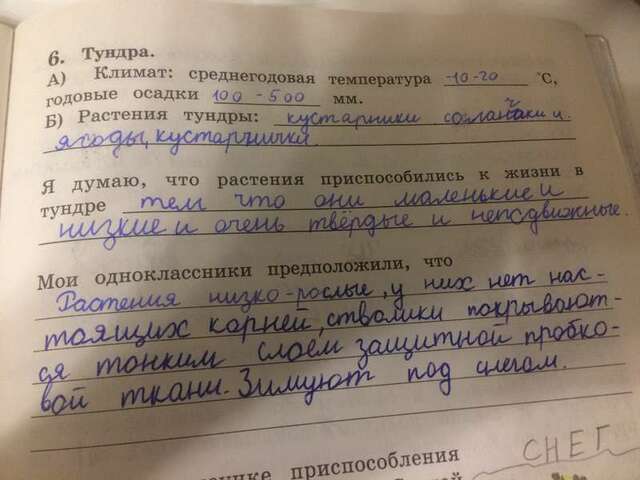 6. Тундра.
А) Климат: среднегодовая температура -10-20 °С,
годовые осадки 100 - 500 мм.
Б) Растения тундры: кустарники
ягоды, кустарнички
Я думаю, что растения приспособились к жизни в
тундре тем что они маленькие и
низкие и очень твёрдые и неподвижные.
Мои одноклассники предположили, что
Растения низко-рослые, у них нет нас-
тоящих корней, стволики покрывают-
ся тонким слоем защитной пробко-
вой ткани. Зимуют под снегом.
приспособления
СНЕГ